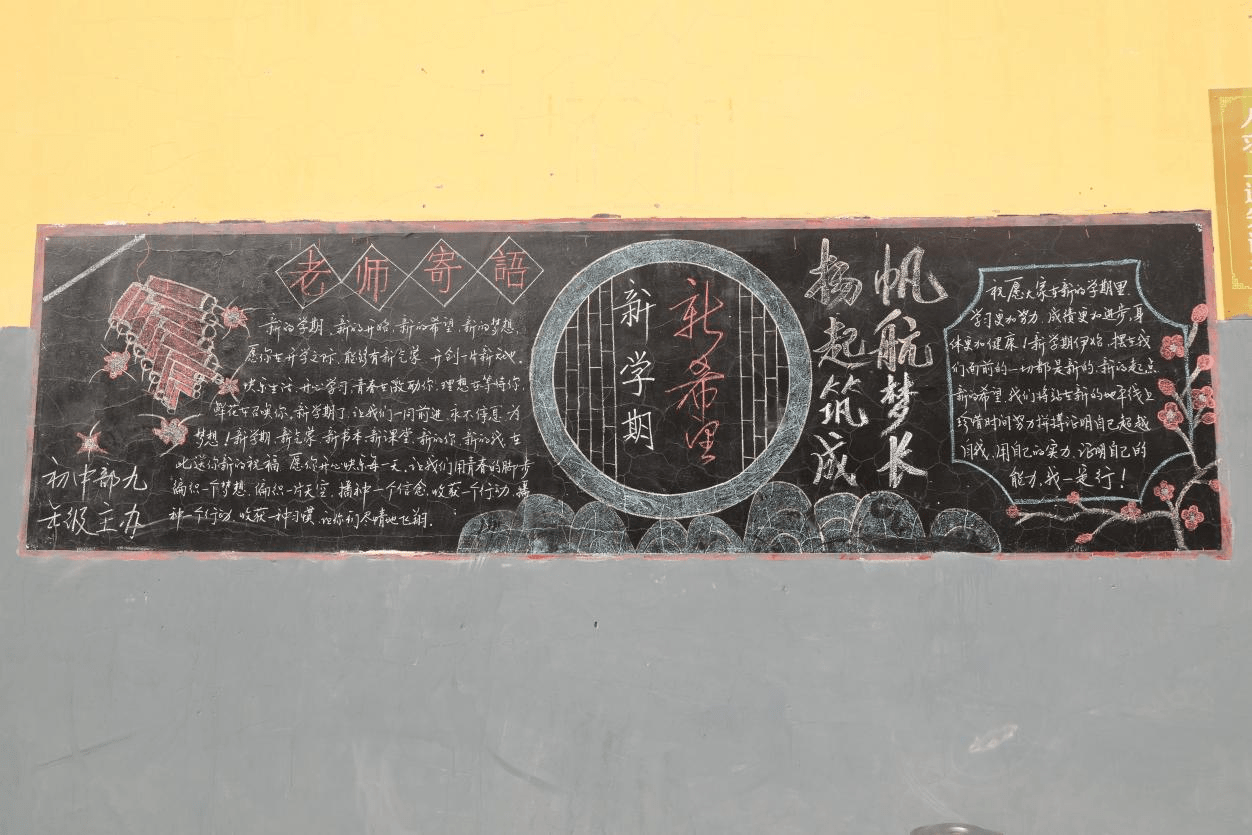 老师寄語
新的学期，新的开始，新的希望，新的梦想，
愿你在开学之际，能够有新气象，开创一片新天地。
快乐生活，开心学习，青春在激动你，理想在等待你，
鲜花在召唤你，新学期了，让我们一同前进，永不停息，为
梦想！新学期，新气象，新书本，新课堂，新的你，新的我，在
此送你新的祝福，愿你开心快乐每一天，让我们用青春的脚步
编织一个梦想，编织一片天空，播种一个信念，收获一个行动，播
种一个行动，收获一种习惯，让你们尽情地飞翔。
初中部九
年级主办
新学期
新希里
扬起筑成
帆航梦长
祝愿大家在新的学期里
学习更加努力，成绩更加进步，身
体更加健康！新学期伊始，摆在我
们面前的一切都是新的，新的起点
新的希望，我们将站在新的地平线上
珍惜时间努力拼搏证明自己超越
自我，用自己的实力，证明自己的
能力，我一定行！